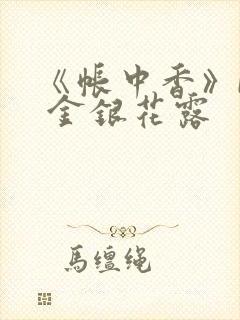 《帐中香》
金银花露
马缰绳